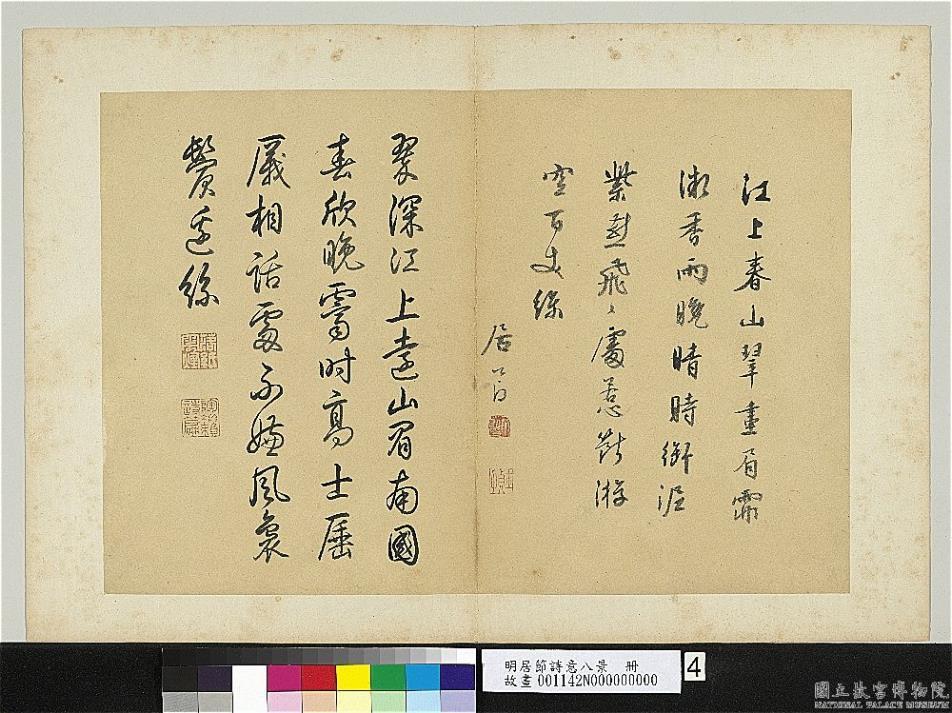 江上春山翠畫眉霏
微香雨晚晴時銜泥
紫燕飛〻處惹斷游
空百丈絲
居節
翠深江上遠山眉南國
春欣晚霽時高士屧
廊相話處不嫌風裊
鬢邊絲
明居節詩意八景 冊
故畫001142N000000000
4
國立故宮博物院
NATIONAL PALACE MUSEUM